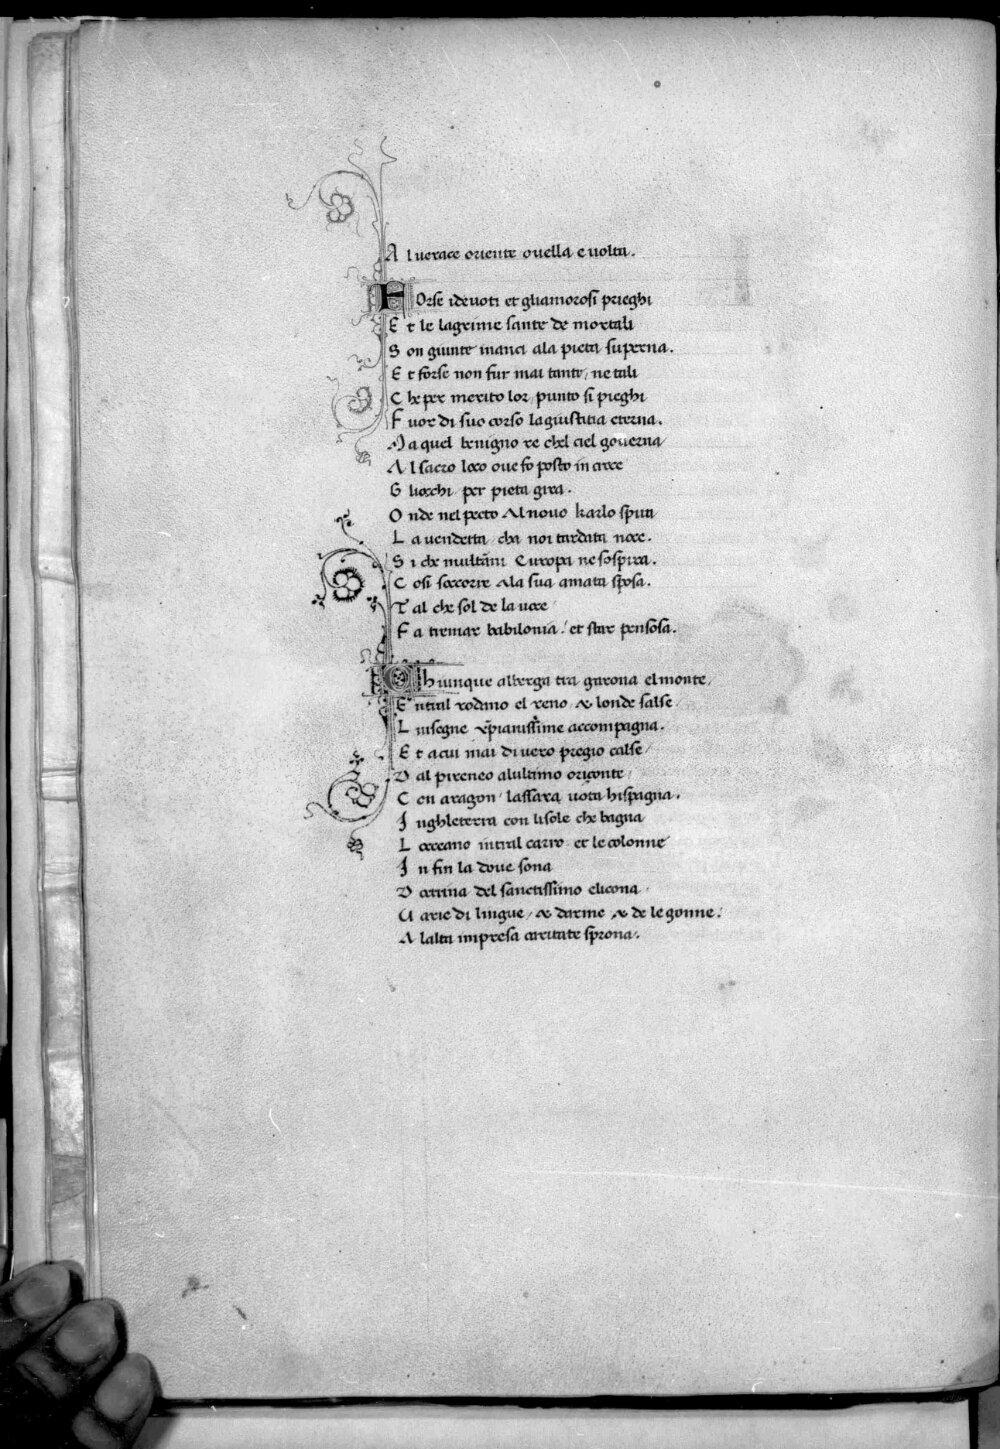 A l verace oriente ovella e volta.
FOrse idevoti et gliamorosi prieghi
E t le lagrime sante de mortali
S on giunte inanci ala pieta superna.
E t forse non fur mai tante, ne tali
C he per merito lor, punto si pieghi
F uor di suo corso lagiustitia eterna.
M a quel benigno re chel ciel governa
A l sacro loco ove fo posto in croce
G liocchi per pieta gira.
O nde nel pecto Al novo karlo spira
L a vendetta, cha noi tardata noce.
S i che multãni Europa ne sospira.
C osi soccorre ala sua amata sposa.
T al che sol de la voce
F a tremar babilonia, et star pensosa.
Chiunque alberga tra garona elmonte,
E ntral rodano el reno, & londe salse
L insegne xp̃ianissime accompagna.
E t acui mai di vero pregio calse
D al pireneo alultimo oriçonte,
C on aragon lassara vota hispagna.
I nghleterra con lisole che bagna
L occeano intral carro et le colonne
I n fin la dove sona
D octrina del sanctissimo elicona
V arie di lingue, & darme & de le gonne.
A lalta impresa caritate sprona.